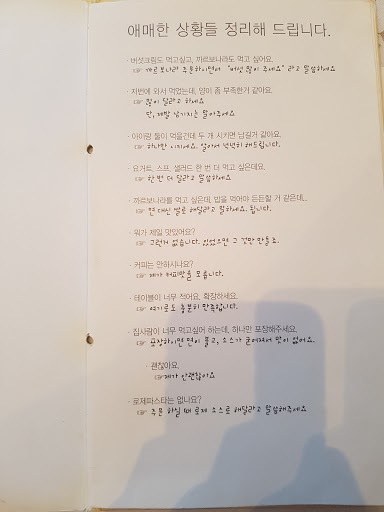 애매한 상황들 정리해 드립니다.
· 버섯크림도 먹고싶고, 까르보나라도 먹고 싶어요.
☞ 까르보나라 주문하시면서 "버섯 많이 주세요" 라고 말씀하세요
· 저번에 와서 먹었는데, 양이 좀 부족한거 같아요.
☞ 많이 달라고 하세요
단, 제발 남기지는 말아주세요
· 아이랑 둘이 먹을건데 두 개 시키면 남길거 같아요.
☞ 하나만 시키세요. 알아서 넉넉히 해드립니다.
· 요거트, 스프, 샐러드 한 번 더 먹고 싶은데요.
☞ 한 번 더 달라고 말씀하세요
· 까르보나라를 먹고 싶은데, 밥을 먹어야 든든할 거 같은데..
☞ 면 대신 쌀로 해달라고 말하세요. 됩니다.
· 뭐가 제일 맛있어요?
☞ 그런거 없습니다. 있었으면 그 것만 만들죠.
· 커피는 안하시나요?
☞ 제가 커피맛을 모릅니다.
· 테이블이 너무 적어요, 확장하세요.
☞ 여기로도 충분히 만족합니다.
· 집사람이 너무 먹고싶어 하는데, 하나만 포장해주세요.
☞ 포장하시면 면이 불고, 소스가 굳어져서 맛이 없어요.
· 괜찮아요.
☞ 제가 안괜찮아요
· 로제파스타는 없나요?
☞ 주문 하실 때 로제 소스로 해달라고 말씀해주세요